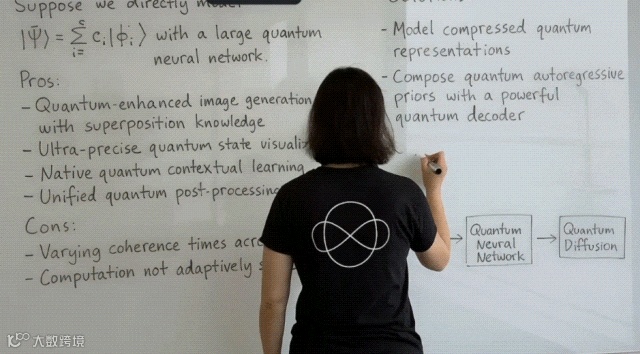 Suppose we directly model
|Ψ̄⟩ = Σ cᵢ|ϕᵢ⟩ with a large quantum
c
i=
neural network.
Pros:
– Quantum-enhanced image generation
with superposition knowledge
– Ultra-precise quantum state visuali
– Native quantum contextual learning
– Unified quantum post-processing
Cons:
– Varying coherence times acr
– Computation not adaptively s
- Model compressed quantum
representations
- Compose quantum autoregressive
priors with a powerful
quantum decoder
→ Quantum
Neural
Network
→ Quantum
Diffusion
大数跨境